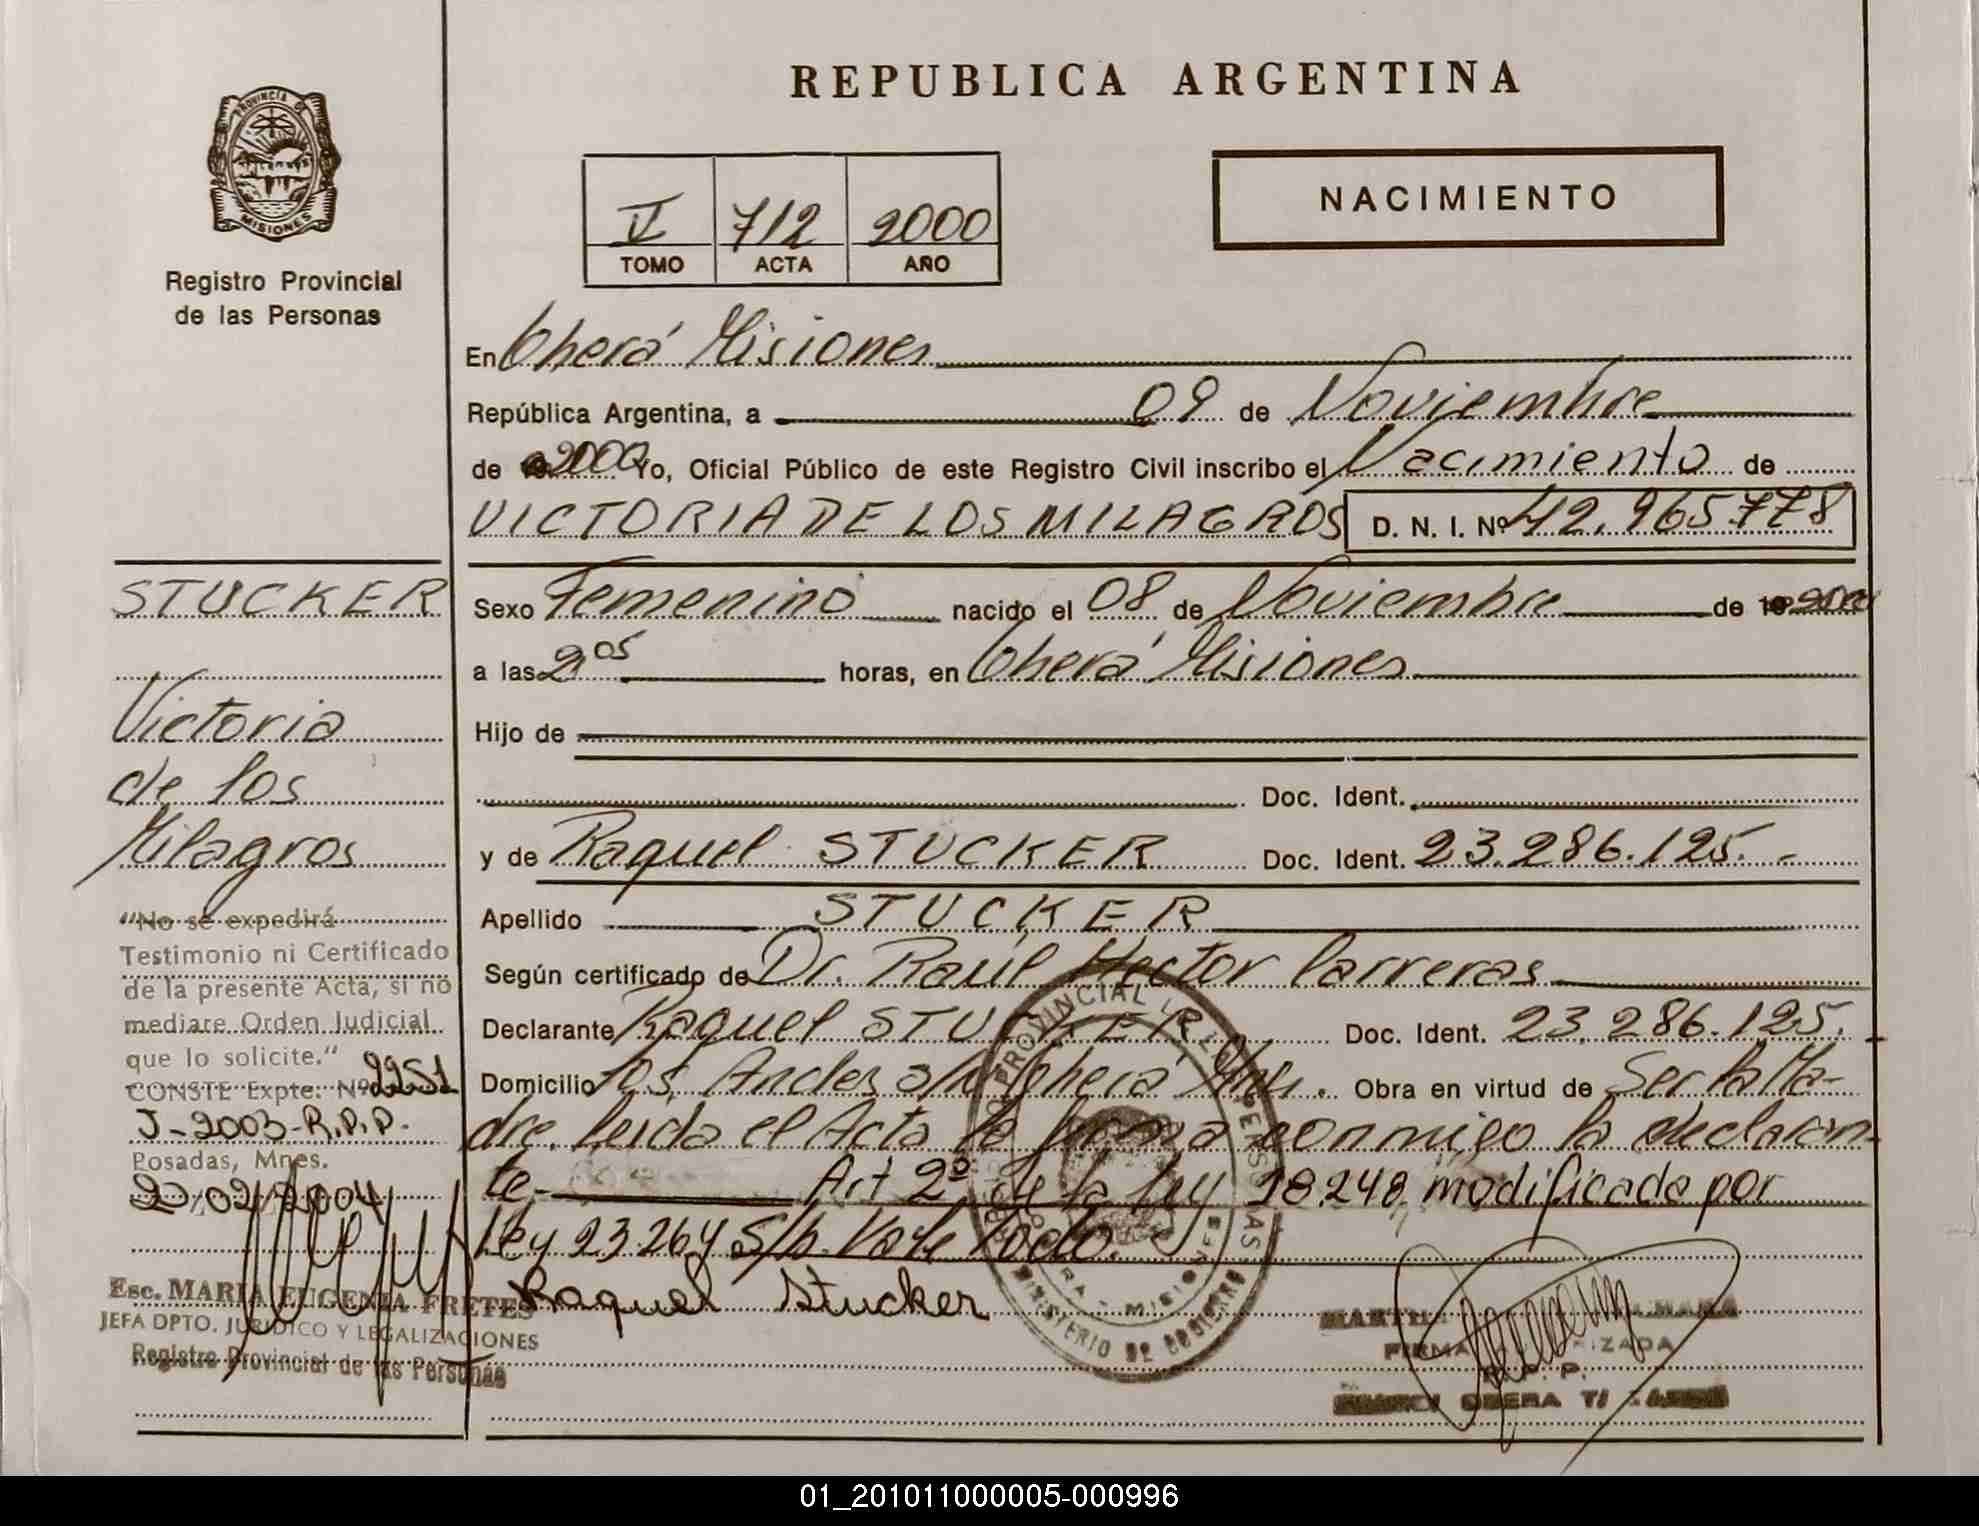 REPUBLICA ARGENTINA
PROVINCIA DE
MISIONES
Registro Provincial
de las Personas
V 712 2000
TOMO ACTA AÑO
NACIMIENTO
En Oberá Misiones
República Argentina, a 09 de Noviembre
de 2000 Yo, Oficial Público de este Registro Civil inscribo el Nacimiento de
VICTORIA DE LOS MILAGROS D. N. I. Nº 42.965.778
Sexo Femenino nacido el 08 de Noviembre de 2000
a las 2 05 horas, en Oberá Misiones
Hijo de
Doc. Ident.
y de Raquel STUCKER Doc. Ident. 23.286.125.-
Apellido STUCKER
Según certificado de Dr. Raúl Hector Carreras
Declarante Raquel STUCKER Doc. Ident. 23.286.125.
Domicilio los Andes s/n Oberá Mnes. Obra en virtud de Ser la Ma-
dre. leida el Acta la firma conmigo la declaran-
te- Art 2º de la ley 18.248, modificada por
ley 23.264 S/b. Vale todo.
Raquel Stucker
STUCKER
Victoria
de los
Milagros
"No se expedirá
Testimonio ni Certificado
de la presente Acta, si no
mediare Orden Judicial
que lo solicite."
CONSTE Expte. Nº 2251
J-2003-R.P.P.
Posadas, Mnes.
20/02/2004
Esc. MARIA EUGENIA FRETES
JEFA DPTO. JURIDICO Y LEGALIZACIONES
Registro Provincial de las Personas
PROVINCIAL DE LAS PERSONAS
MINISTERIO DE GOBIERNO
FIRMA AUTORIZADA
R. P. P.
OBERA
01_201011000005-000996